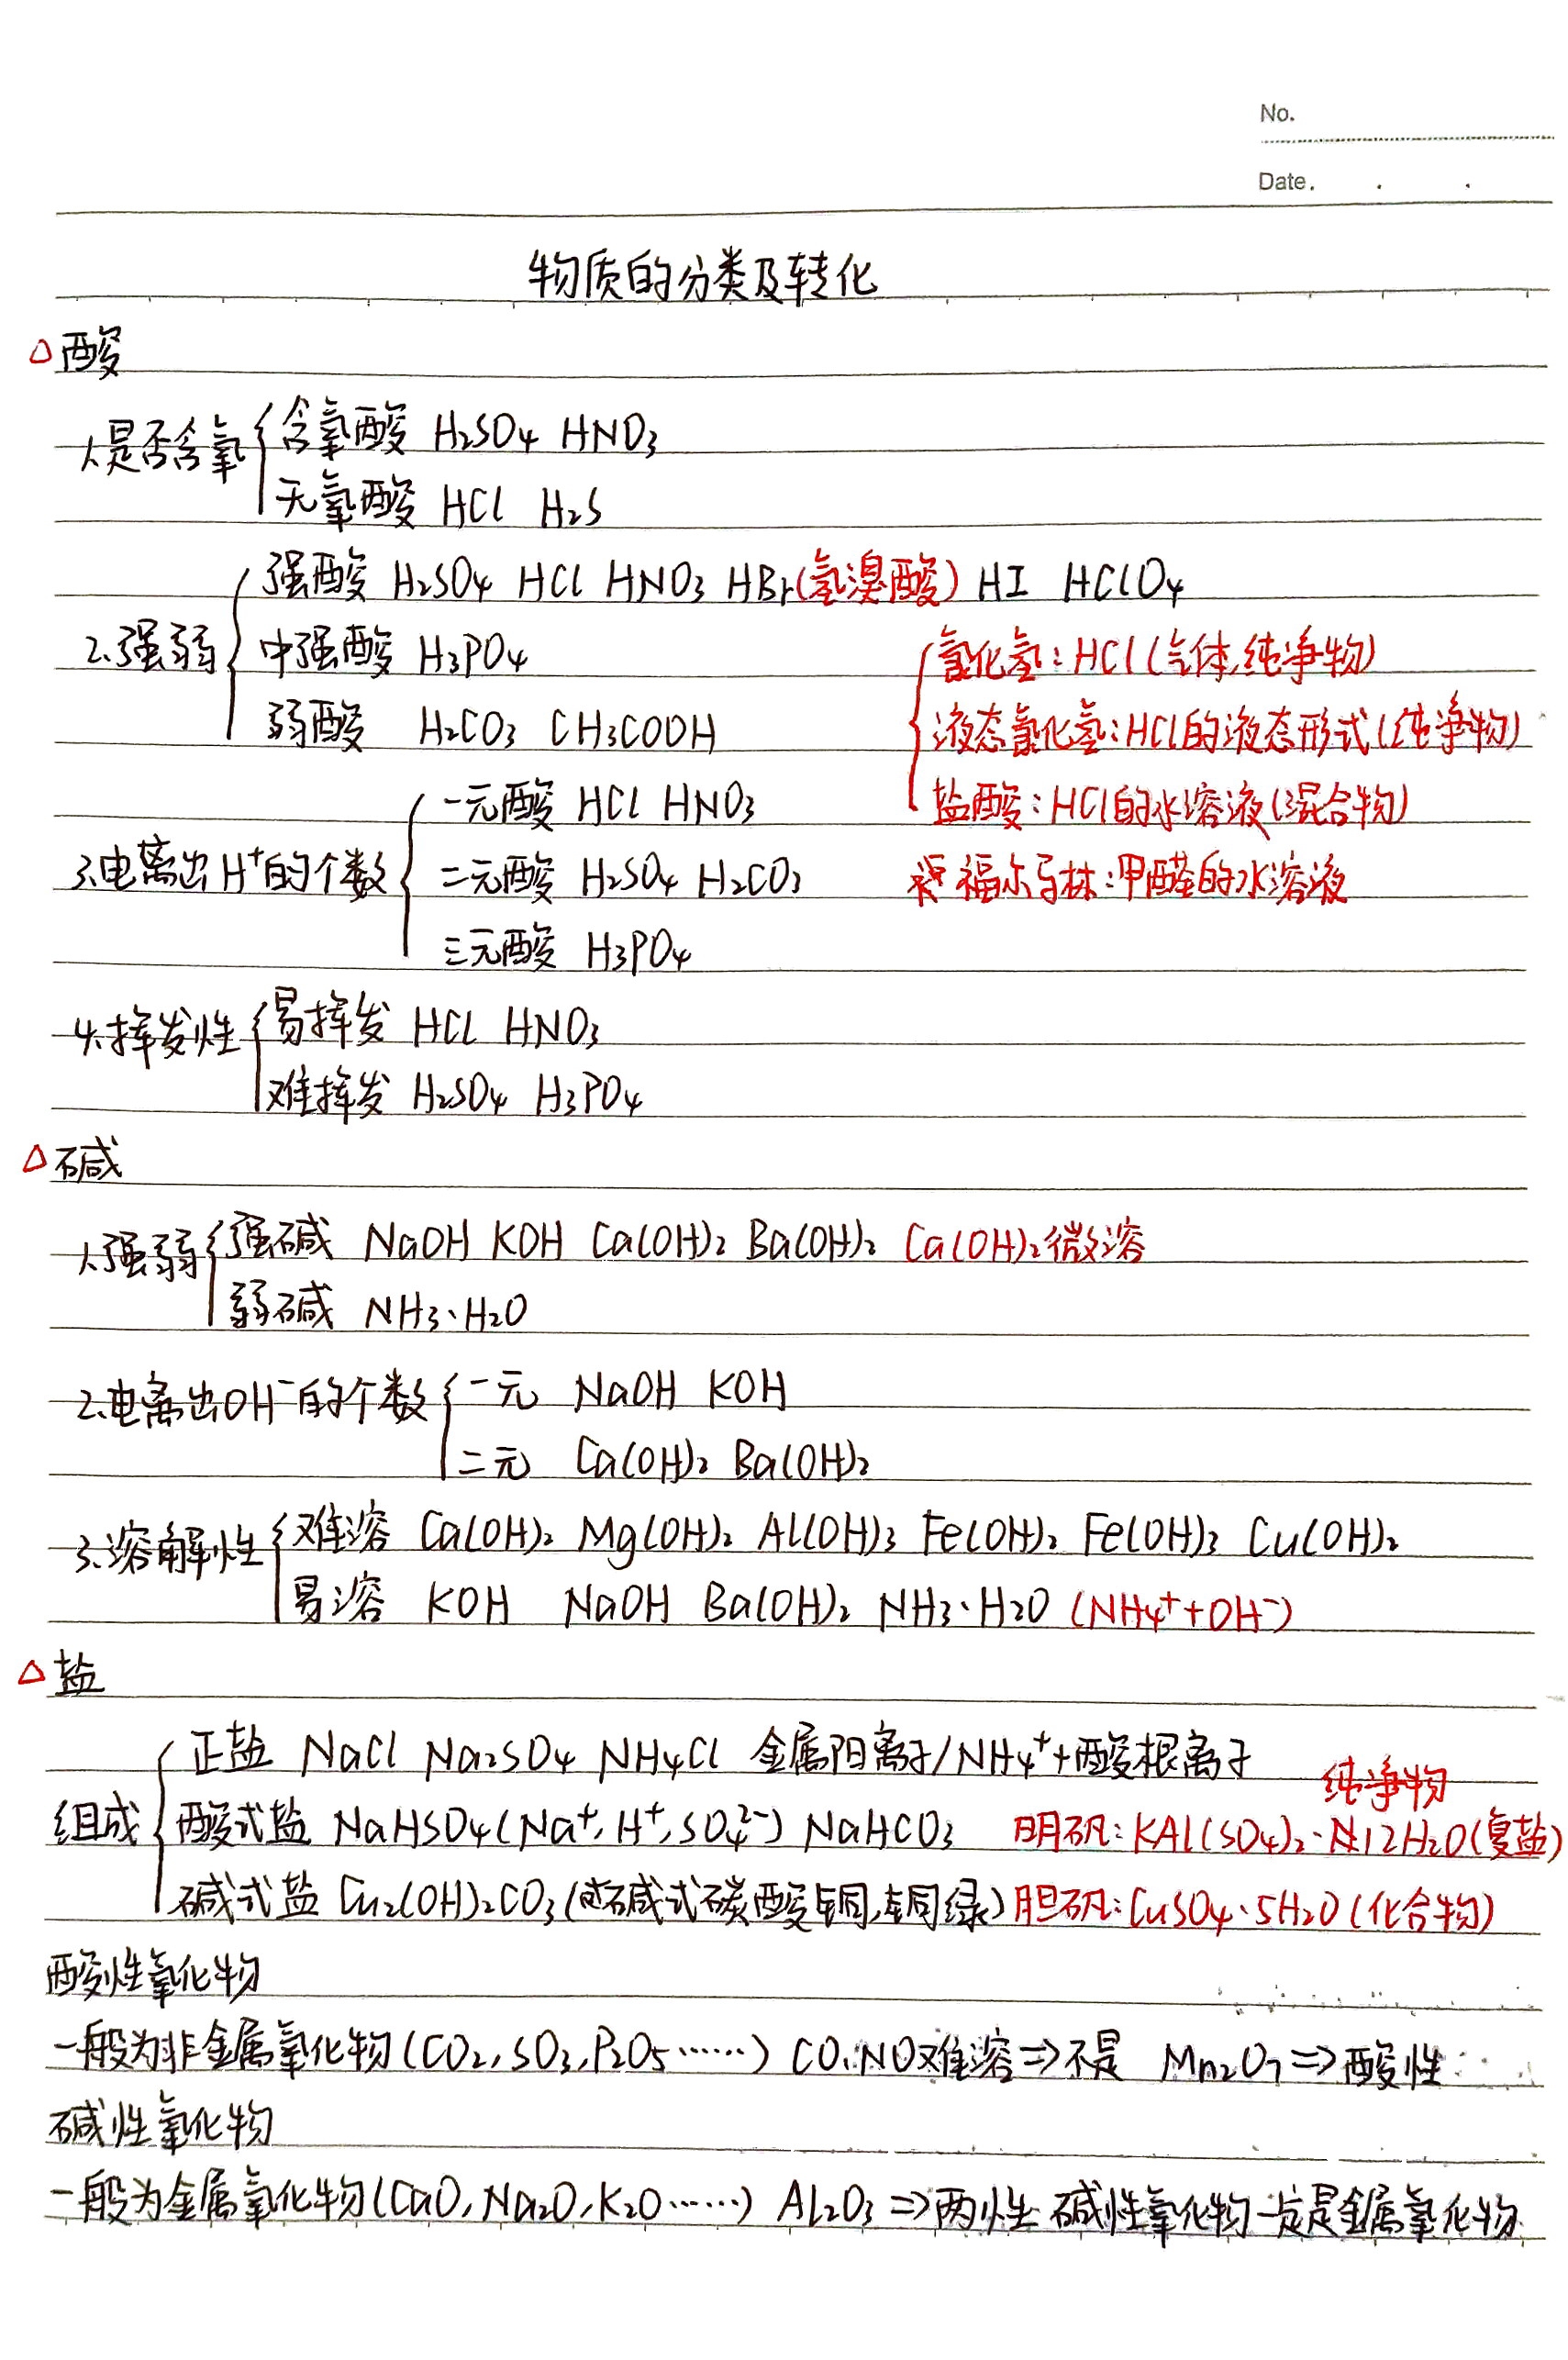 No.
Date.
物质的分类及转化
△酸
1.是否含氧 { 含氧酸 H₂SO₄ HNO₃
无氧酸 HCl H₂S
2.强弱 { 强酸 H₂SO₄ HCl HNO₃ HBr(氢溴酸) HI HClO₄
中强酸 H₃PO₄
弱酸 H₂CO₃ CH₃COOH
{ 氯化氢:HCl(气体,纯净物)
液态氯化氢:HCl的液态形式(纯净物)
盐酸:HCl的水溶液(混合物)
3.电离出H⁺的个数 { 一元酸 HCl HNO₃
二元酸 H₂SO₄ H₂CO₃
三元酸 H₃PO₄
福尔马林:甲醛的水溶液
4.挥发性 { 易挥发 HCl HNO₃
难挥发 H₂SO₄ H₃PO₄
△碱
1.强弱 { 强碱 NaOH KOH Ca(OH)₂ Ba(OH)₂ Ca(OH)₂微溶
弱碱 NH₃·H₂O
2.电离出OH⁻的个数 { 一元 NaOH KOH
二元 Ca(OH)₂ Ba(OH)₂
3.溶解性 { 难溶 Ca(OH)₂ Mg(OH)₂ Al(OH)₃ Fe(OH)₂ Fe(OH)₃ Cu(OH)₂
易溶 KOH NaOH Ba(OH)₂ NH₃·H₂O (NH₄⁺+OH⁻)
△盐
组成 { 正盐 NaCl Na₂SO₄ NH₄Cl 金属阳离子/NH₄⁺+酸根离子
纯净物
酸式盐 NaHSO₄(Na⁺,H⁺,SO₄²⁻) NaHCO₃ 明矾:KAl(SO₄)₂·12H₂O(复盐)
碱式盐 Cu₂(OH)₂CO₃(碱式碳酸铜,铜绿) 胆矾:CuSO₄·5H₂O(化合物)
酸性氧化物
一般为非金属氧化物(CO₂,SO₃,P₂O₅……) CO、NO难溶⇒不是 Mn₂O₇⇒酸性
碱性氧化物
一般为金属氧化物(CaO,Na₂O,K₂O……) Al₂O₃⇒两性 碱性氧化物一定是金属氧化物